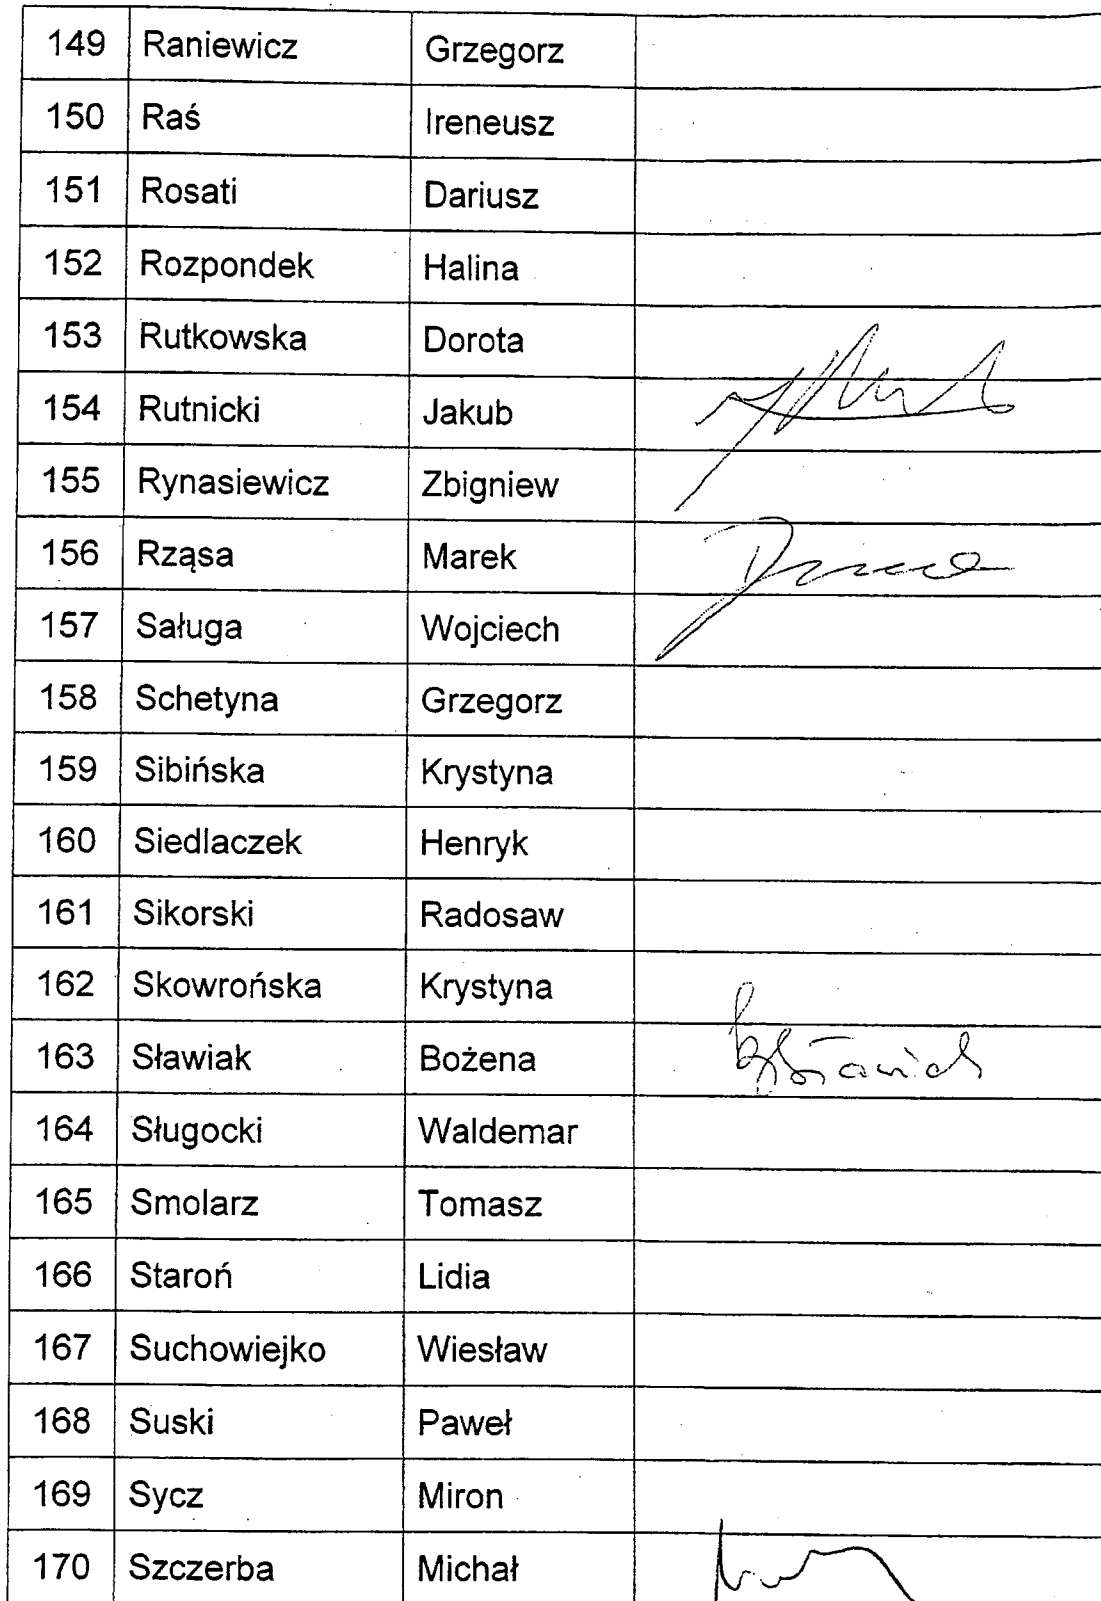 149 Raniewicz Grzegorz
150 Raś Ireneusz
151 Rosati Dariusz
152 Rozpondek Halina
153 Rutkowska Dorota
154 Rutnicki Jakub
155 Rynasiewicz Zbigniew
156 Rząsa Marek
157 Saługa Wojciech
158 Schetyna Grzegorz
159 Sibińska Krystyna
160 Siedlaczek Henryk
161 Sikorski Radosaw
162 Skowrońska Krystyna
163 Sławiak Bożena
164 Sługocki Waldemar
165 Smolarz Tomasz
166 Staroń Lidia
167 Suchowiejko Wiesław
168 Suski Paweł
169 Sycz Miron
170 Szczerba Michał